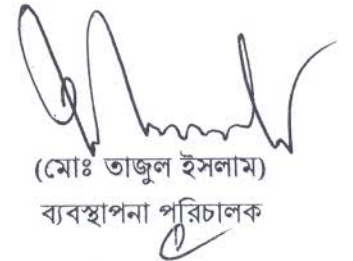 (মোঃ তাজুল ইসলাম)
ব্যবস্থাপনা পরিচালক